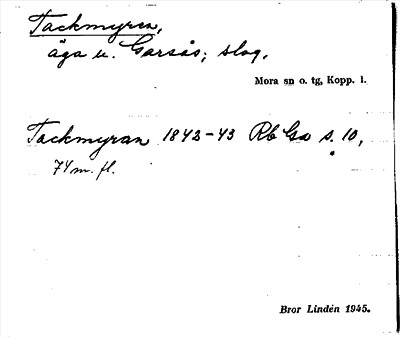 Tackmyren,
äga u. Garsås; slog.
Mora sn o. tg, Kopp. l.
Tackmyran 1842-43 Rb Ga s. 10,
74 m. fl.
Bror Lindén 1945.